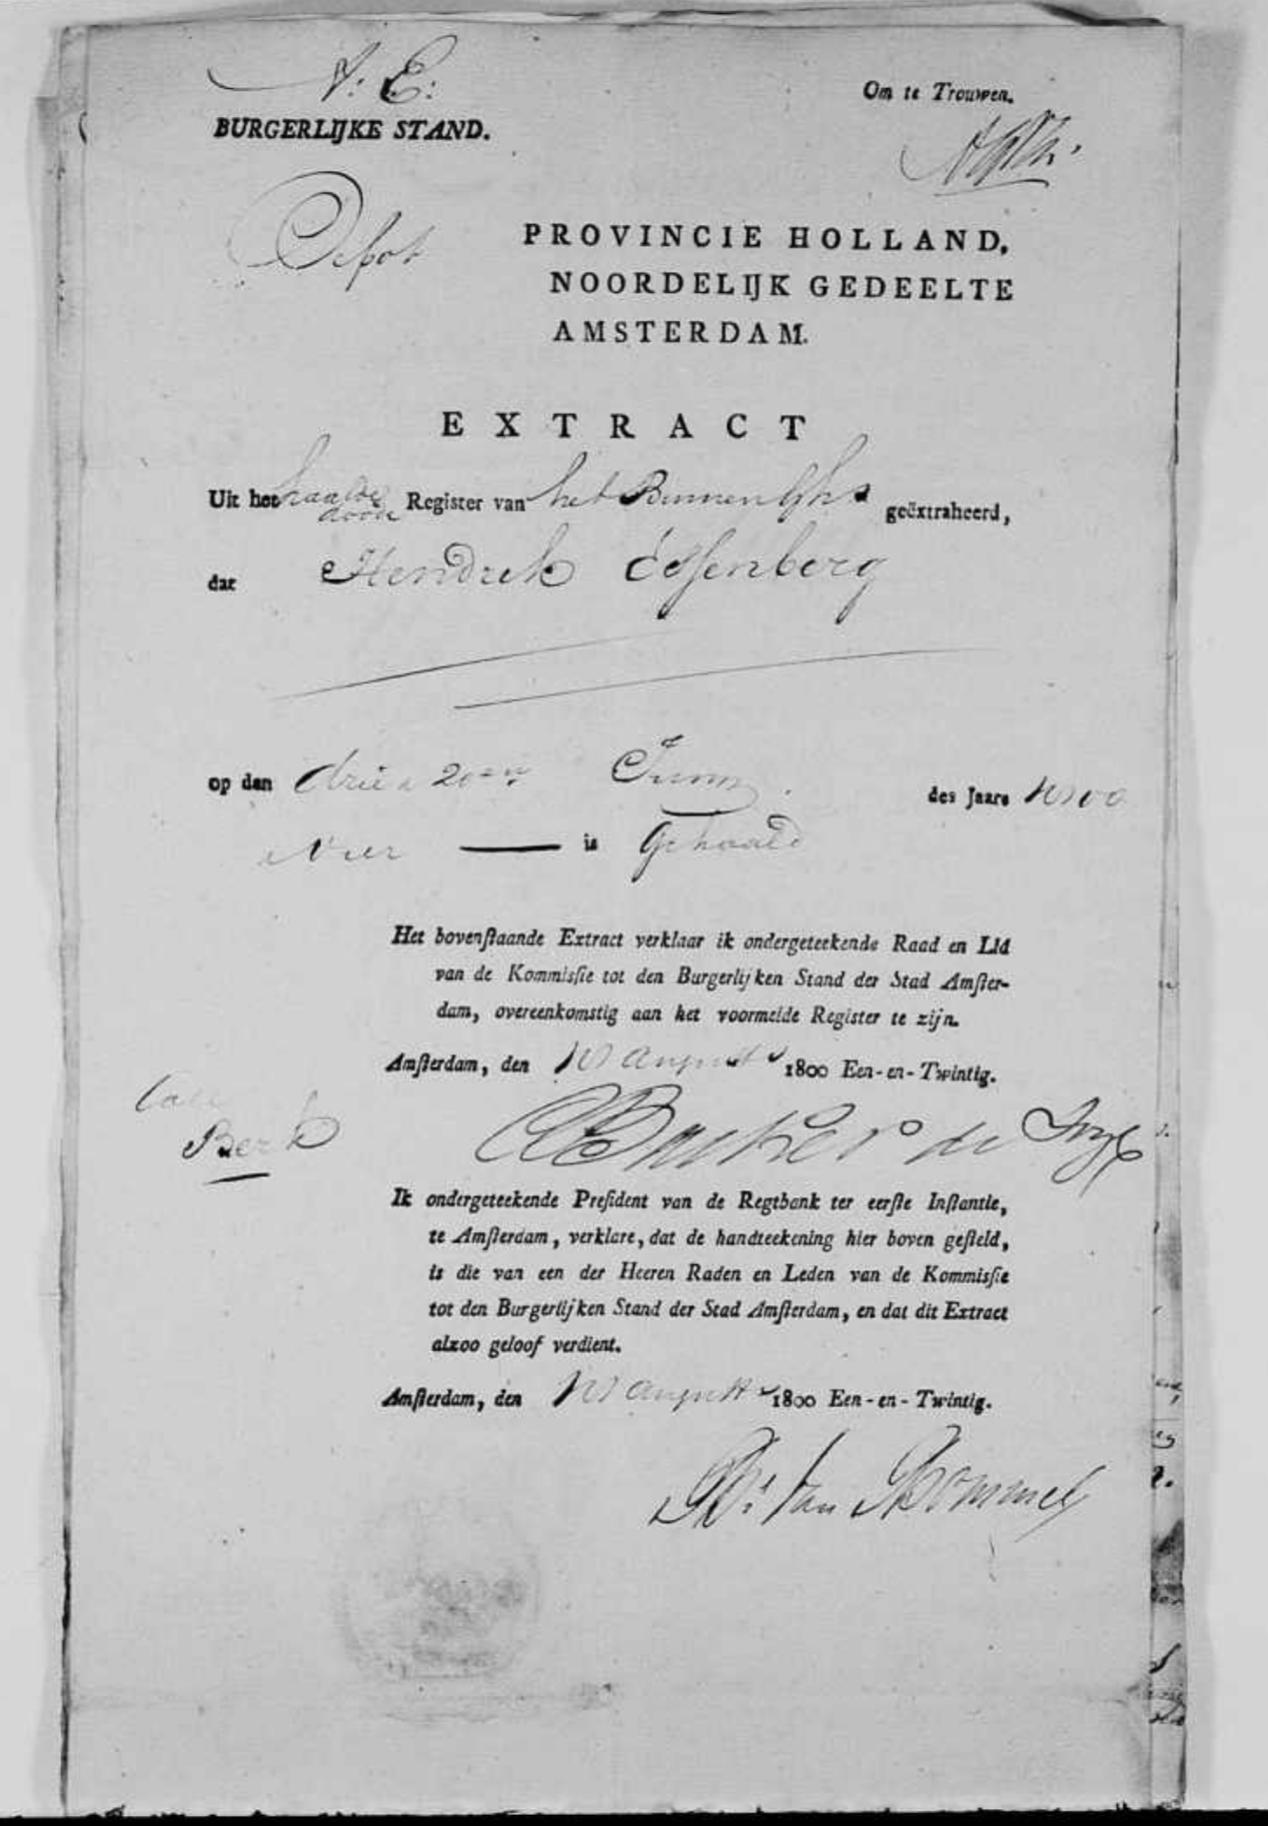 N: E:
BURGERLIJKE STAND.
Om te Trouwen.
Depot
PROVINCIE HOLLAND,
NOORDELIJK GEDEELTE
AMSTERDAM.
EXTRACT
Uit het haalde doode Register van het Binnen geëxtraheerd,
dat Hendrik Essenberg
op den drie Juny des Jaars
Vier is Gehaald
Het bovenſtaande Extract verklaar ik ondergeteekende Raad en Lid
van de Kommisſie tot den Burgerlijken Stand der Stad Amſter-
dam, overeenkomstig aan het voormelde Register te zijn.
Amſterdam, den 10 Augustus 1800 Een-en-Twintig.
Berk
Backer de
Ik ondergeteekende Preſident van de Regtbank ter eerſte Inſtantie,
te Amſterdam, verklare, dat de handteekening hier boven geſteld,
is die van een der Heeren Raden en Leden van de Kommisſie
tot den Burgerlijken Stand der Stad Amſterdam, en dat dit Extract
alzoo geloof verdient.
Amſterdam, den 10 Augustus 1800 Een-en-Twintig.
van Bommel